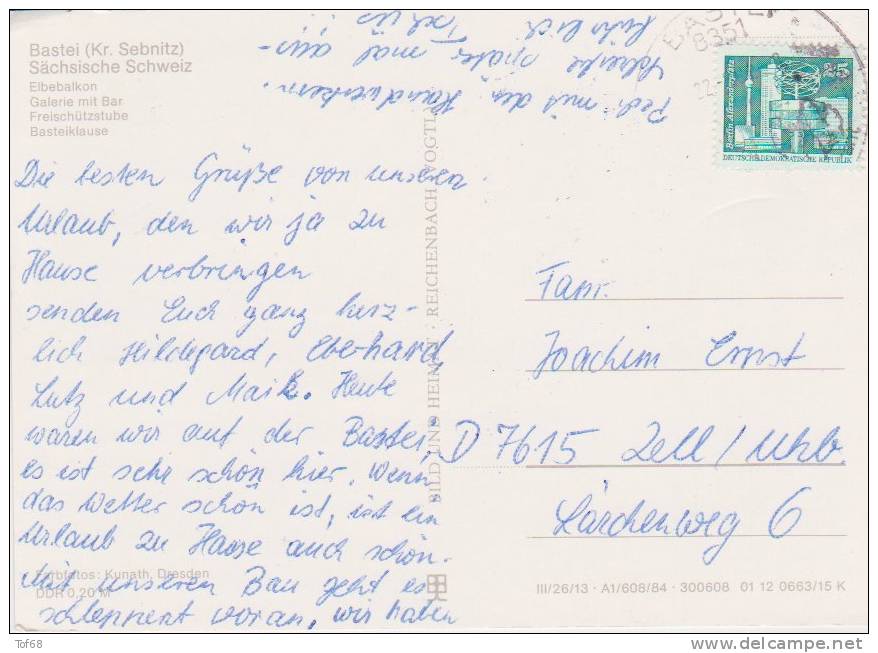 Bastei (Kr. Sebnitz)
Sächsische Schweiz
Elbebalkon
Galerie mit Bar
Freischützstube
Basteiklause
Die besten Grüße von unseren
Urlaub, den wir ja zu
Hause verbringen
senden Euch ganz herz-
lich Hildegard, Eberhard,
Lutz und Maik. Heute
waren wir auf der Bastei,
es ist sehr schön hier. Wenn
das Wetter schön ist, ist ein
Urlaub zu Hause auch schön.
Mit unseren Bau geht es
schleppent voran, wir haben
Pech mit den Handwerkern.
Schreibe später mal aus-
führlich. Tschüs
Farbfotos: Kunath, Dresden
DDR 0,20 M
BILD UND HEIMAT · REICHENBACH (VOGTL
BASTEI
8351
22.
Berlin, Alexanderplatz
25
DEUTSCHE DEMOKRATISCHE REPUBLIK
Fam.
Joachim Ernst
D 7615 Zell / Uhb.
Lärchenweg 6
III/26/13 · A1/608/84 · 300608 01 12 0663/15 K
Tof68
delcampe.net